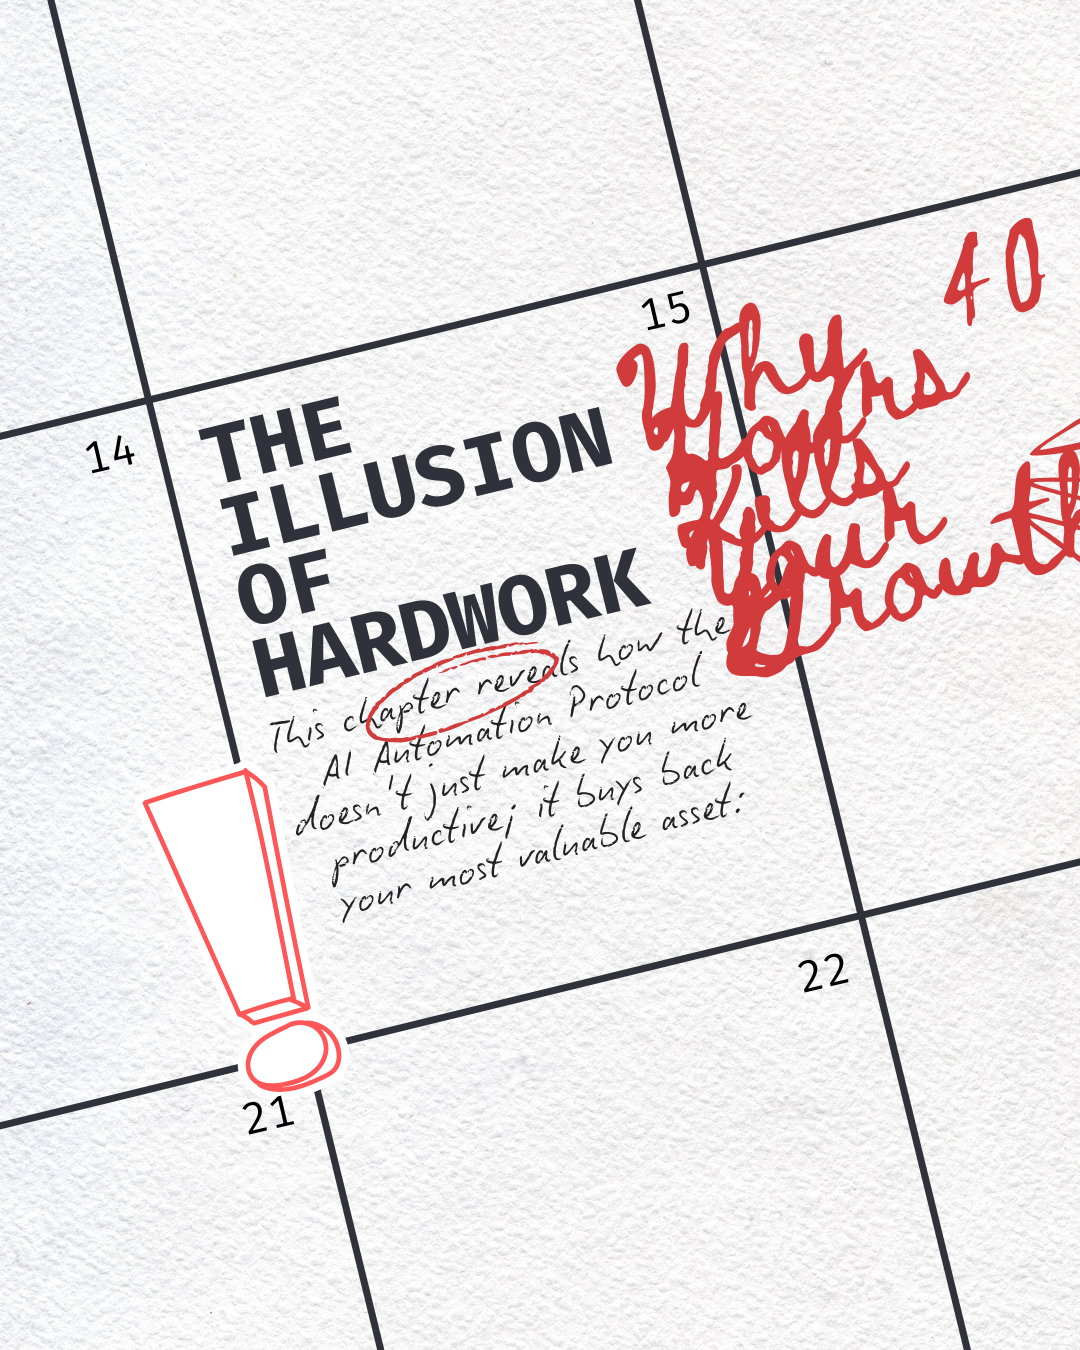 15
14
THE
ILLUSION
OF
HARDWORK
Why 40
Hours
Kills
Your
Growth
This chapter reveals how the
AI Automation Protocol
doesn't just make you more
productive; it buys back
your most valuable asset:
22
21